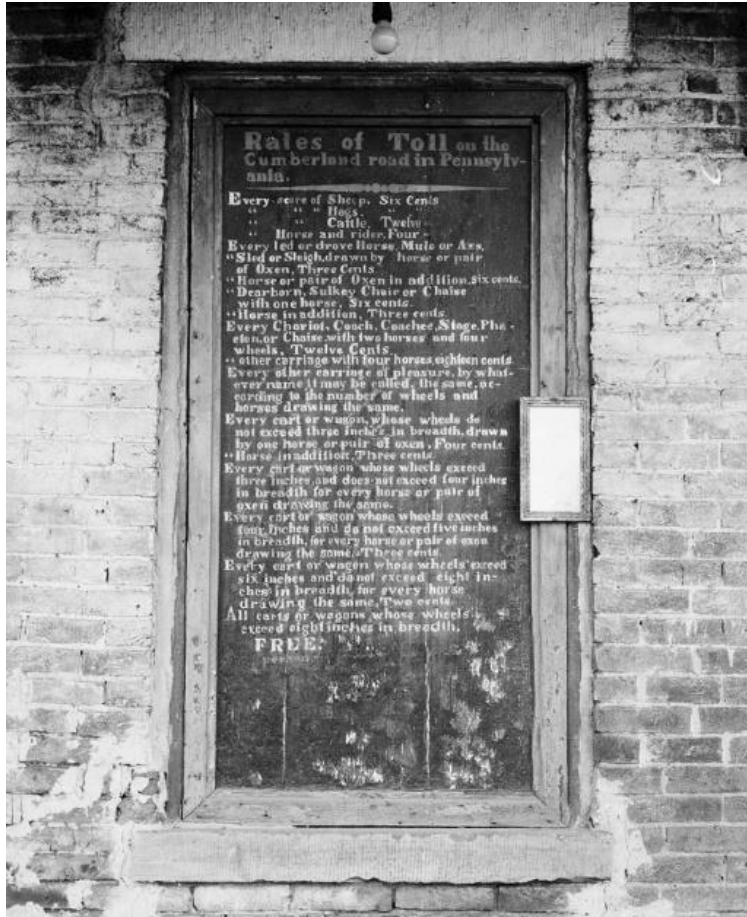 Rates of Toll on the
Cumberland road in Pennsylv-
ania.
Every score of Sheep, Six Cents
“ “ “ Hogs, “ “
“ “ Cattle, Twelve “
“ Horse and rider, Four -
Every led or drove Horse, Mule or Ass,
“ Sled or Sleigh, drawn by horse or pair
of Oxen, Three Cents.
“ Horse or pair of Oxen in addition, six cents.
“ Dearborn, Sulkey Chair or Chaise
with one horse, Six cents.
“ Horse in addition, Three cents.
Every Chariot, Coach, Coachee, Stage, Pha-
eton, or Chaise, with two horses and four
wheels, Twelve Cents.
“ other carriage with four horses, eighteen cents.
Every other carriage of pleasure, by what-
ever name it may be called, the same, ac-
cording to the number of wheels and
horses drawing the same.
Every cart or wagon, whose wheels do
not exceed three inches in breadth, drawn
by one horse or pair of oxen, Four cents.
“ Horse in addition, Three cents.
Every cart or wagon whose wheels exceed
three inches, and does not exceed four inches
in breadth for every horse or pair of
oxen drawing the same.
Every cart or wagon whose wheels exceed
four inches and do not exceed five inches
in breadth, for every horse or pair of oxen
drawing the same, Three cents.
Every cart or wagon whose wheels exceed
six inches and do not exceed eight in-
ches in breadth, for every horse
drawing the same, Two cents.
All carts or wagons whose wheels
exceed eight inches in breadth,
FREE.